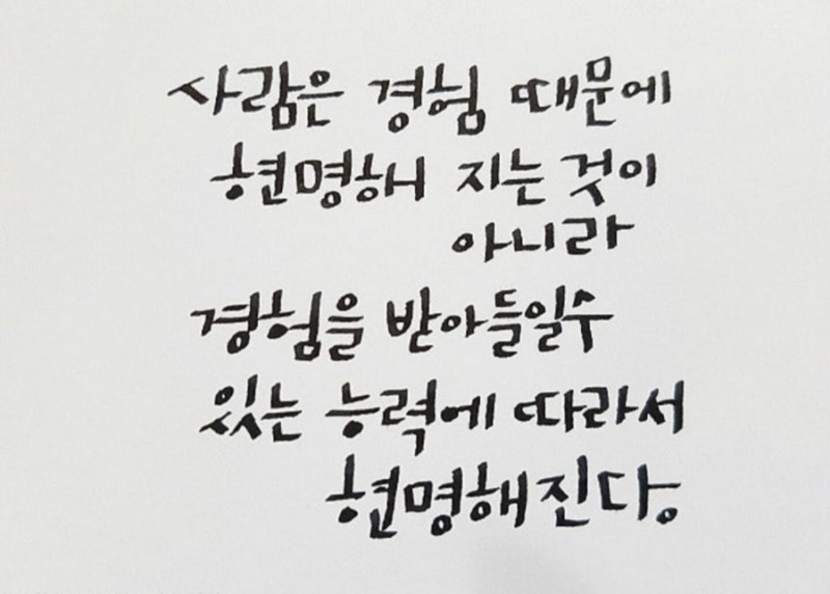 사람은 경험 때문에
현명해 지는 것이
아니라
경험을 받아들일수
있는 능력에 따라서
현명해진다.